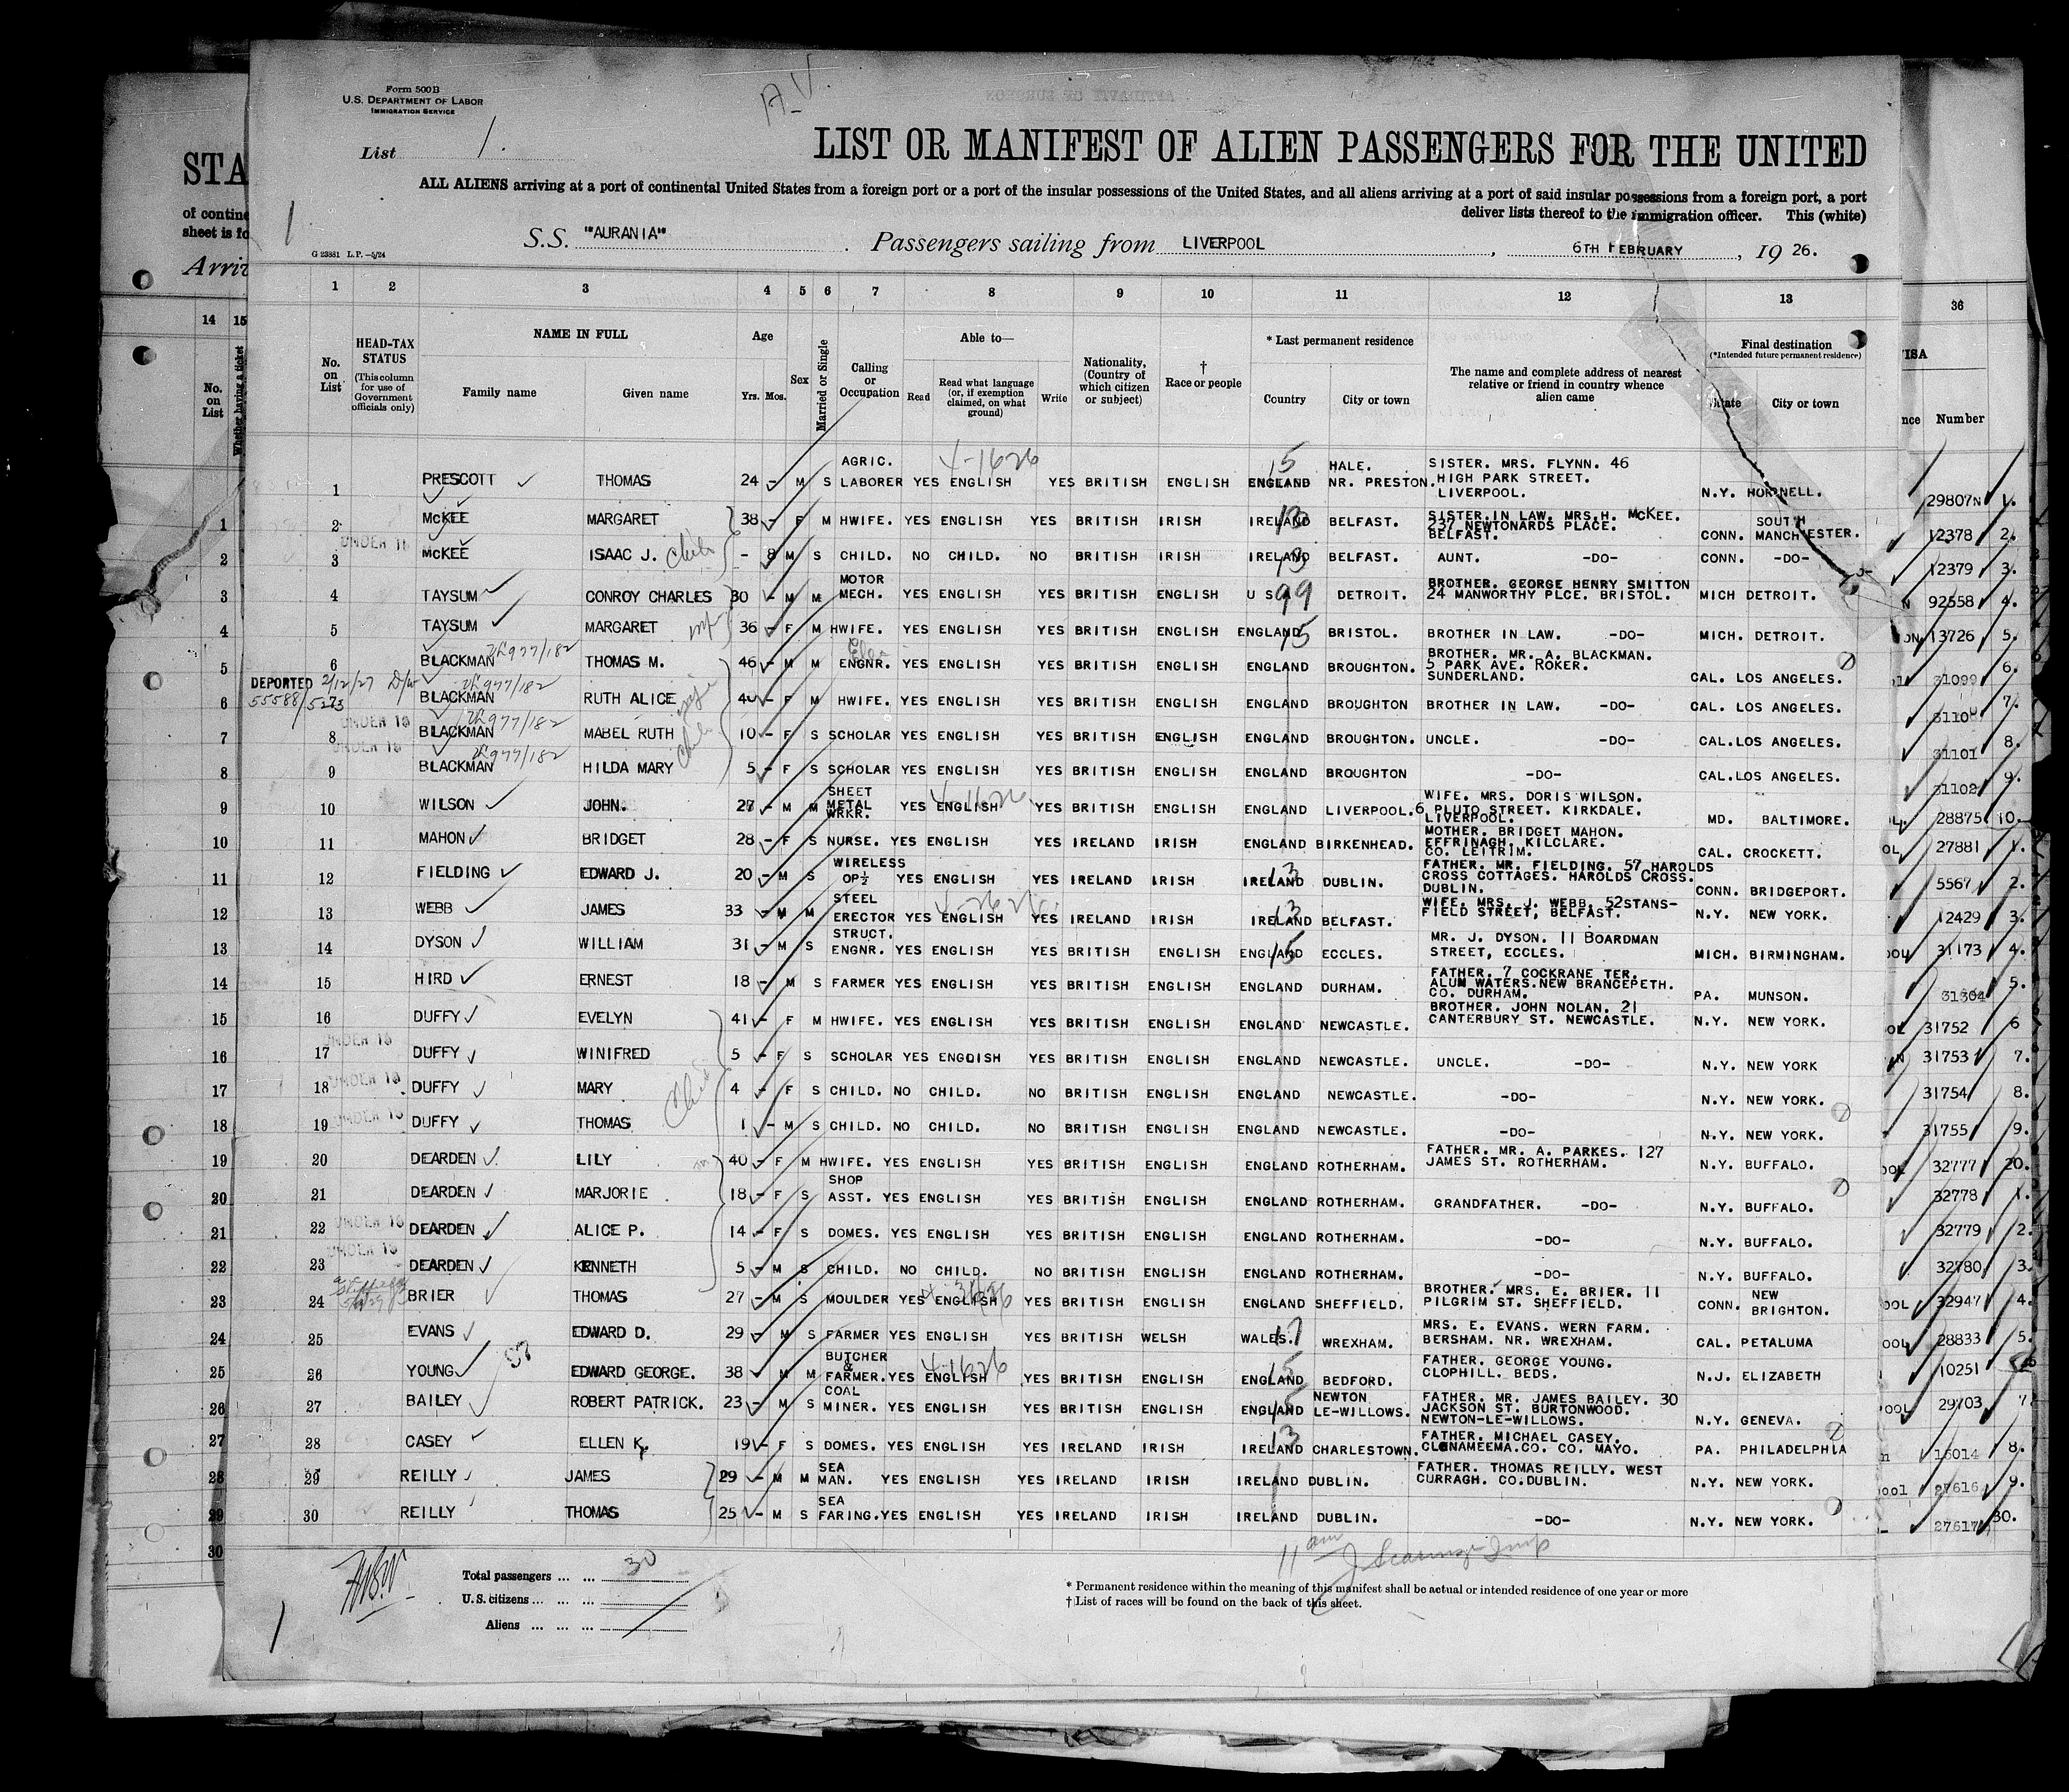 Form 500B
U.S. DEPARTMENT OF LABOR
IMMIGRATION SERVICE
A.V.
List 1.
LIST OR MANIFEST OF ALIEN PASSENGERS FOR THE UNITED
STA
ALL ALIENS arriving at a port of continental United States from a foreign port or a port of the insular possessions of the United States, and all aliens arriving at a port of said insular possessions from a foreign port, a port
deliver lists thereof to the immigration officer. This (white)
of contine
sheet is fo
Arriv
1
S.S. "AURANIA" Passengers sailing from LIVERPOOL, 6TH FEBRUARY, 19 26.
G 23881 L.P.—5/24
1 2 3 4 5 6 7 8 9 10 11 12 13 36
14 15
No. on List
Whether having a ticket
No. on List
HEAD-TAX STATUS
(This column for use of Government officials only)
NAME IN FULL
Family name Given name
Age
Yrs. Mos.
Sex
Married or Single
Calling or Occupation
Able to—
Read Read what language (or, if exemption claimed, on what ground) Write
Nationality, (Country of which citizen or subject)
† Race or people
* Last permanent residence
Country City or town
The name and complete address of nearest relative or friend in country whence alien came
Final destination
(*Intended future permanent residence)
State City or town
VISA
nce Number
1 PRESCOTT THOMAS 24 - M S AGRIC. LABORER YES ENGLISH YES BRITISH ENGLISH ENGLAND HALE. NR. PRESTON. SISTER. MRS. FLYNN. 46 HIGH PARK STREET. LIVERPOOL. N.Y. HORNELL. 29807N 1.
2 McKEE MARGARET 38 - F M HWIFE. YES ENGLISH YES BRITISH IRISH IRELAND BELFAST. SISTER IN LAW. MRS. H. McKEE. 237 NEWTONARDS PLACE. BELFAST. CONN. SOUTH MANCHESTER. 12378 2.
3 UNDER 16 McKEE ISAAC J. Child - 8 M S CHILD. NO CHILD. NO BRITISH IRISH IRELAND BELFAST. AUNT. -DO- CONN. -DO- 12379 3.
4 TAYSUM CONROY CHARLES 30 - M M MOTOR MECH. YES ENGLISH YES BRITISH ENGLISH U S A 99 DETROIT. BROTHER. GEORGE HENRY SMITTON 24 MANWORTHY PLCE. BRISTOL. MICH DETROIT. 92558 4.
5 TAYSUM MARGARET 36 - F M HWIFE. YES ENGLISH YES BRITISH ENGLISH ENGLAND BRISTOL. BROTHER IN LAW. -DO- MICH. DETROIT. 13726 5.
6 BLACKMAN THOMAS M. 46 - M M ENGNR. YES ENGLISH YES BRITISH ENGLISH ENGLAND BROUGHTON. BROTHER. MR. A. BLACKMAN. 5 PARK AVE. ROKER. SUNDERLAND. CAL. LOS ANGELES. 31099 6.
DEPORTED 2/12/27
55588/527
7 BLACKMAN RUTH ALICE 40 - F M HWIFE. YES ENGLISH YES BRITISH ENGLISH ENGLAND BROUGHTON BROTHER IN LAW. -DO- CAL. LOS ANGELES. 31100 7.
8 UNDER 16 BLACKMAN MABEL RUTH 10 - F S SCHOLAR YES ENGLISH YES BRITISH ENGLISH ENGLAND BROUGHTON. UNCLE. -DO- CAL. LOS ANGELES. 31101 8.
9 UNDER 16 BLACKMAN HILDA MARY 5 - F S SCHOLAR YES ENGLISH YES BRITISH ENGLISH ENGLAND BROUGHTON -DO- CAL. LOS ANGELES. 31102 9.
10 WILSON JOHN. 27 - M M SHEET METAL WRKR. YES ENGLISH YES BRITISH ENGLISH ENGLAND LIVERPOOL. WIFE. MRS. DORIS WILSON. 6 PLUTO STREET. KIRKDALE. LIVERPOOL. MD. BALTIMORE. 28875 10.
11 MAHON BRIDGET 28 - F S NURSE. YES ENGLISH YES IRELAND IRISH ENGLAND BIRKENHEAD. MOTHER. BRIDGET MAHON. EFFRINAGH. KILCLARE. CO. LEITRIM. CAL. CROCKETT. 27881 1.
12 FIELDING EDWARD J. 20 - M S WIRELESS OP½ YES ENGLISH YES IRELAND IRISH IRELAND DUBLIN. FATHER. MR. FIELDING. 57 HAROLDS CROSS COTTAGES. HAROLDS CROSS. DUBLIN. CONN. BRIDGEPORT. 5567 2.
13 WEBB JAMES 33 - M M STEEL ERECTOR YES ENGLISH YES IRELAND IRISH IRELAND BELFAST. WIFE. MRS. J. WEBB. 52 STANS-FIELD STREET, BELFAST. N.Y. NEW YORK. 12429 3.
14 DYSON WILLIAM 31 - M S STRUCT. ENGNR. YES ENGLISH YES BRITISH ENGLISH ENGLAND ECCLES. MR. J. DYSON. 11 BOARDMAN STREET, ECCLES. MICH. BIRMINGHAM. 31173 4.
15 HIRD ERNEST 18 - M S FARMER YES ENGLISH YES BRITISH ENGLISH ENGLAND DURHAM. FATHER. 7 COCKRANE TER. ALUM WATERS. NEW BRANCEPETH. CO. DURHAM. PA. MUNSON. 31304 5.
16 DUFFY EVELYN 41 - F M HWIFE. YES ENGLISH YES BRITISH ENGLISH ENGLAND NEWCASTLE. BROTHER. JOHN NOLAN. 21 CANTERBURY ST. NEWCASTLE. N.Y. NEW YORK. 31752 6
17 UNDER 16 DUFFY WINIFRED 5 - F S SCHOLAR YES ENGOISH YES BRITISH ENGLISH ENGLAND NEWCASTLE. UNCLE. -DO- N.Y. NEW YORK 31753 7.
18 UNDER 16 DUFFY MARY 4 - F S CHILD. NO CHILD. NO BRITISH ENGLISH ENGLAND NEWCASTLE. -DO- N.Y. NEW YORK. 31754 8.
19 UNDER 16 DUFFY THOMAS 1 - M S CHILD. NO CHILD. NO BRITISH ENGLISH ENGLAND NEWCASTLE. -DO- N.Y. NEW YORK. 31755 9.
20 DEARDEN LILY 40 - F M HWIFE. YES ENGLISH YES BRITISH ENGLISH ENGLAND ROTHERHAM. FATHER. MR. A. PARKES. 127 JAMES ST. ROTHERHAM. N.Y. BUFFALO. 32777 20.
21 DEARDEN MARJORIE 18 - F S SHOP ASST. YES ENGLISH YES BRITISH ENGLISH ENGLAND ROTHERHAM. GRANDFATHER. -DO- N.Y. BUFFALO. 32778 1.
22 UNDER 16 DEARDEN ALICE P. 14 - F S DOMES. YES ENGLISH YES BRITISH ENGLISH ENGLAND ROTHERHAM. -DO- N.Y. BUFFALO. 32779 2.
23 UNDER 16 DEARDEN KENNETH 5 - M S CHILD. NO CHILD. NO BRITISH ENGLISH ENGLAND ROTHERHAM. -DO- N.Y. BUFFALO. 32780 3.
24 BRIER THOMAS 27 - M S MOULDER YES ENGLISH YES BRITISH ENGLISH ENGLAND SHEFFIELD. BROTHER. MRS. E. BRIER. 11 PILGRIM ST. SHEFFIELD. CONN. NEW BRIGHTON. 32947 4.
25 EVANS EDWARD D. 29 - M S FARMER YES ENGLISH YES BRITISH WELSH WALES. WREXHAM. MRS. E. EVANS. WERN FARM. BERSHAM. NR. WREXHAM. CAL. PETALUMA 28833 5.
26 YOUNG EDWARD GEORGE. 38 M M BUTCHER & FARMER. YES ENGLISH YES BRITISH ENGLISH ENGLAND BEDFORD. FATHER. GEORGE YOUNG. CLOPHILL. BEDS. N.J. ELIZABETH 10251
27 BAILEY ROBERT PATRICK. 23 - M S COAL MINER. YES ENGLISH YES BRITISH ENGLISH ENGLAND NEWTON LE-WILLOWS. FATHER. MR. JAMES BAILEY. 30 JACKSON ST. BURTONWOOD. NEWTON-LE-WILLOWS. N.Y. GENEVA. 29703 7
28 CASEY ELLEN K. 19 - F S DOMES. YES ENGLISH YES IRELAND IRISH IRELAND CHARLESTOWN. FATHER. MICHAEL CASEY. CLONAMEEMA. CO. CO. MAYO. PA. PHILADELPHIA 15014 8.
29 REILLY JAMES 29 - M M SEA MAN. YES ENGLISH YES IRELAND IRISH IRELAND DUBLIN. FATHER. THOMAS REILLY. WEST CURRAGH. CO. DUBLIN. N.Y. NEW YORK. 27616 9.
30 REILLY THOMAS 25 - M S SEA FARING. YES ENGLISH YES IRELAND IRISH IRELAND DUBLIN. -DO- N.Y. NEW YORK. 27617 30.
11 am
Total passengers ... ... 30
U.S. citizens ... ... ...
Aliens ... ... ...
* Permanent residence within the meaning of this manifest shall be actual or intended residence of one year or more
† List of races will be found on the back of this sheet.
1